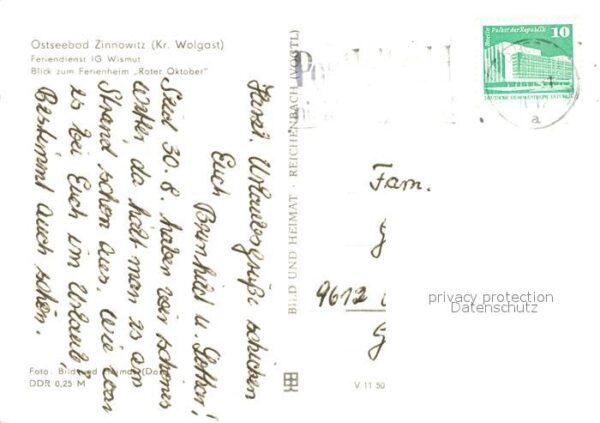 Ostseebad Zinnowitz (Kr. Wolgast)
Feriendienst IG Wismut
Blick zum Ferienheim „Roter Oktober"
Herzl. Urlaubsgrüße schicken
Euch Brunhild u. Lothar!
Seid 30.8. haben wir schönes
Wetter, da hält man es am
Strand schon aus. Wie war
es bei Euch im Urlaub,?
Bestimmt auch schön.
Foto: Bild und Heimat
DDR 0,25 M
BILD UND HEIMAT · REICHENBACH (VOGTL)
V 11 50
Berlin Palast der Republik
10
DEUTSCHE DEMOKRATISCHE REPUBLIK
a
Fam.
G
9612
G
privacy protection
Datenschutz